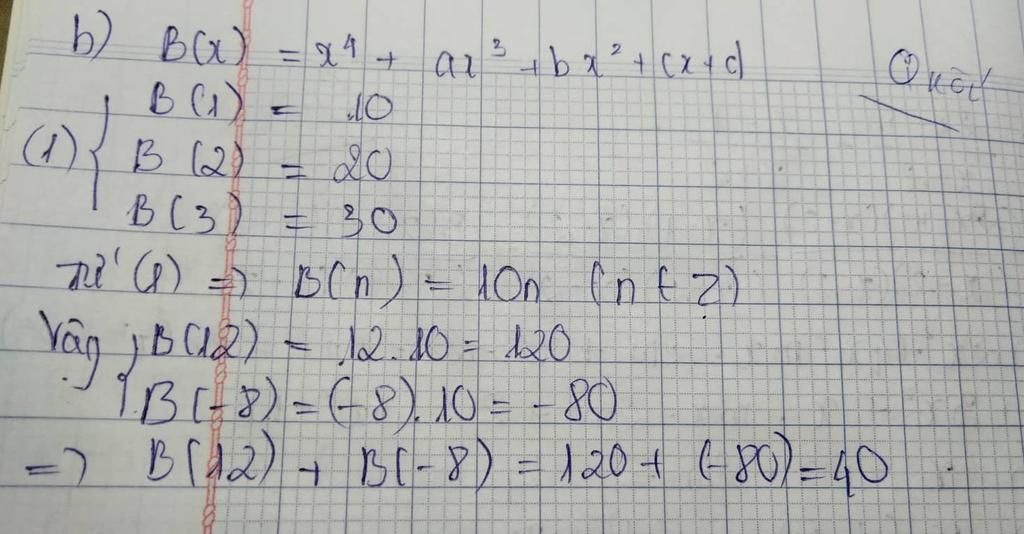 b) B(x) = x⁴ + ax³ + bx² + cx + d
B(1) = 10
(1) { B(2) = 20
B(3) = 30
Từ (1) => B(n) = 10n (n ∈ Z)
Vậy { B(12) = 12.10 = 120
B(-8) = (-8).10 = -80
=> B(12) + B(-8) = 120 + (-80) = 40